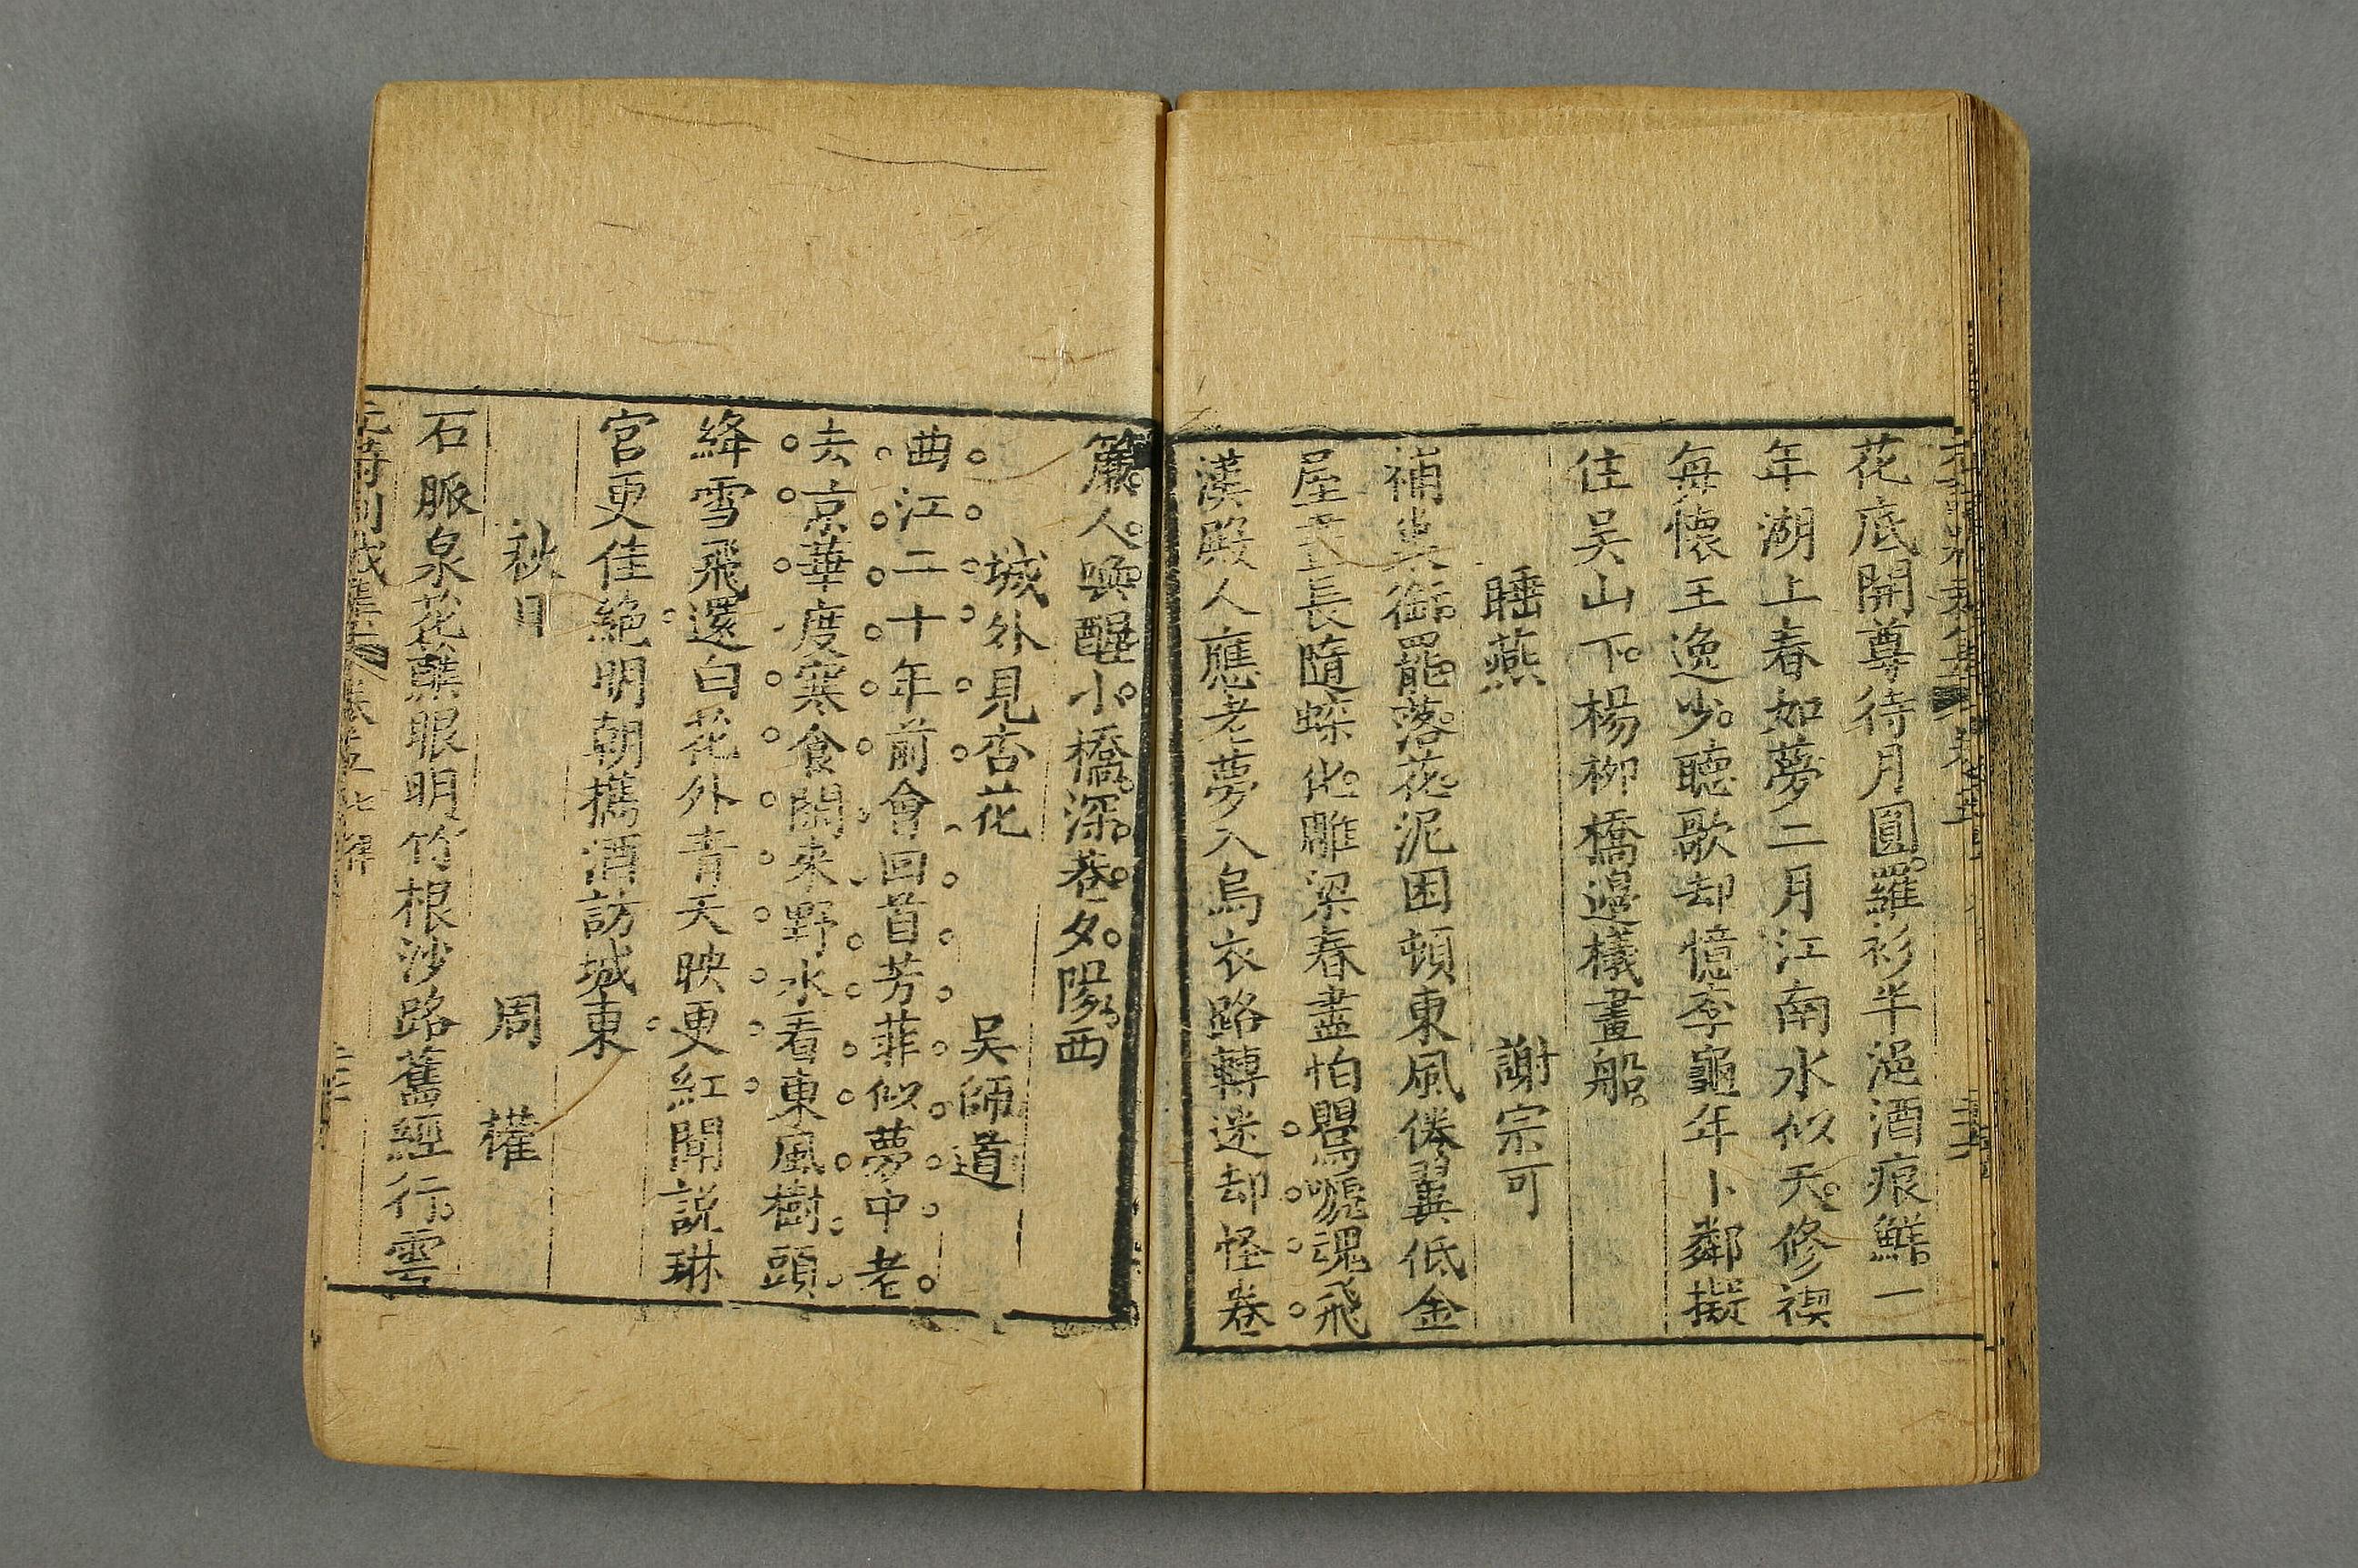 花底開尊待月圓羅衫半浥酒痕鮮一
年湖上春如夢二月江南水似天修禊
每懷王逸少聽歌却憶李龜年卜鄰擬
住吴山下楊柳橋邊檥畫船
睡燕 謝宗可
補巢銜罷落花泥困頓東風倦翼低金
屋晝長隨蝶化雕梁春盡怕鶯啼魂飛
漢殿人應老夢入烏衣路轉迷却怪卷
簾人喚醒小橋深巷夕陽西
城外見杏花 吴師道
曲江二十年前會回首芳菲似夢中老
去京華度寒食閑來野水看東風樹頭
絳雪飛還白花外青天映更紅聞説琳
官更佳絶明朝攜酒訪城東
秋日 周權
石脈泉花蘸眼明竹根沙路舊經行雲